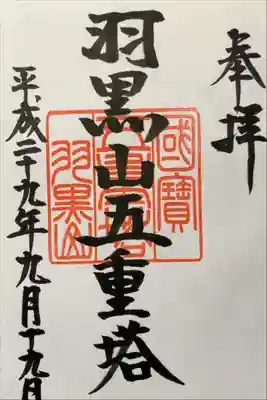 奉拝
羽黒山五重塔
平成二十九年九月十九日
國寶
五重塔
羽黒山